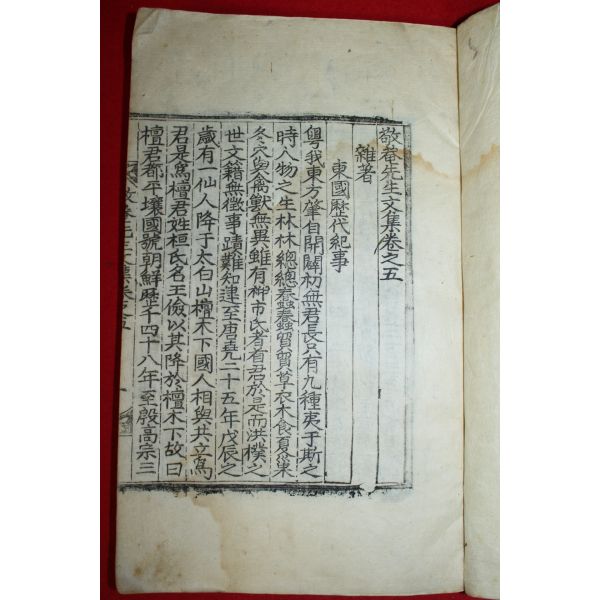 敬菴先生文集卷之五
雜著
東國歷代紀事
粤我東方肇自開闢初無君長只有九種夷于斯之
時人物之生林林總總蠢蠢貿貿草衣木食夏巢
冬穴與禽獸無異雖有神市氏者首君於是而洪樸之
世文籍無徵事蹟難知逮至唐堯二十五年戊辰之
歲有一仙人降于太白山檀木下國人相與共立爲
君是爲檀君姓桓氏名王儉以其降於檀木下故曰
檀君都平壤國號朝鮮歷千四十八年至殷高宗三